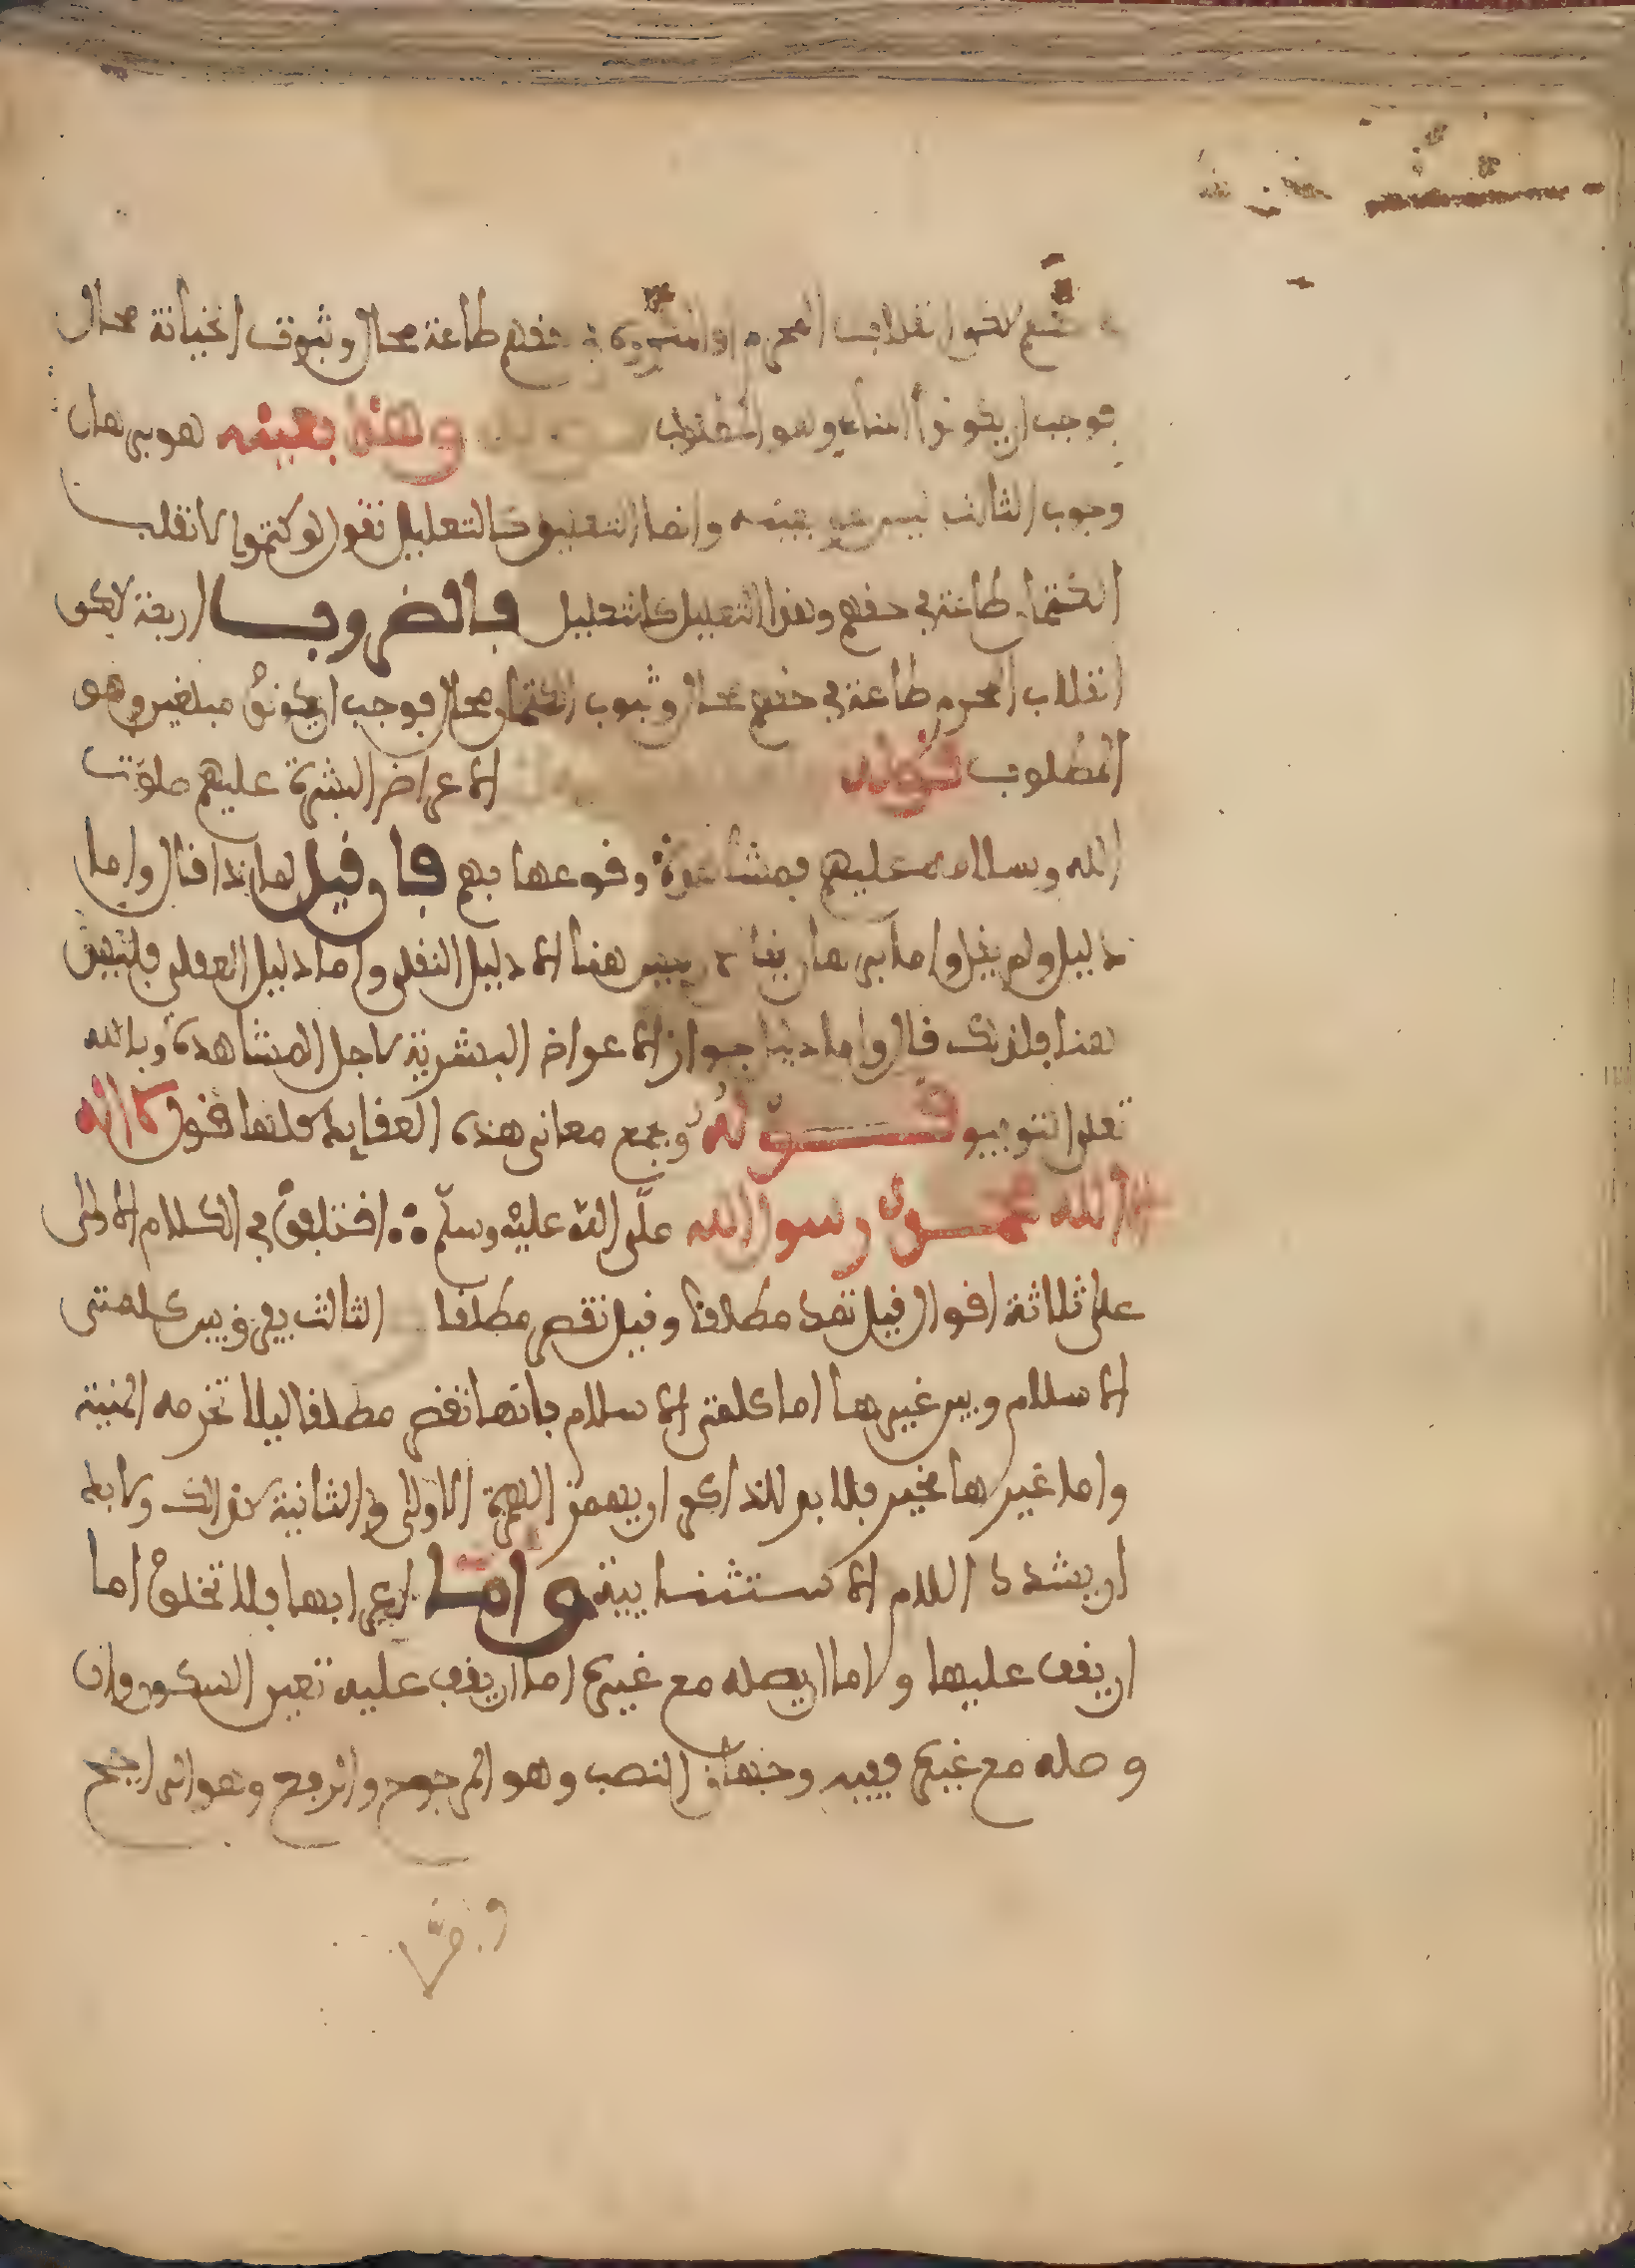 لكن انقلاب المحرم او المكروه في حقهم طاعة محال وثبوت الخيانة محال
فوجب ان يكونوا امناء وهو المطلوب وهذا بعينه هو برهان
وجوب الثالث ليس هو بعينه وانما التعليل كالتعليل نقول لو كتموا لانقلب
الكتمان طاعة في حقهم وهذا التعليل كالتعليل فالضروب اربعة لاكن
انقلاب المحرم طاعة في حقهم محال وثبوت الكتمان محال فوجب ان يكونوا مبلغين وهو
المطلوب قوله الاعراض البشرية عليهم صلوت
الله وسلامه عليهم فمشاهدة وقوعها بهم قا وقيل لماذا قال واما
دليل ولم يقل واما برهان يقال ليس هنا الا دليل النقلي واما دليل العقلي فليس
هنا فلذلك قال واما دليل جواز الاعراض البشرية لاجل المشاهدة وبالله
تعلى التوفيق قوله ويجمع معاني هذه العقايد كلها قول لا اله
الا الله محمد رسول الله صلى الله عليه وسلم اختلف في الكلام الاولى
على ثلاثة اقوال قيل تمد مطلقا وقيل تقصر مطلقا الثالث يفرق بين كلمتي
الاسلام وبين غيرها اما كلمتي الاسلام فانها تقصر مطلقا ليلا تخرمه المنية
واما غيرها مخير فلا بد للذاكر ان يهمز الهمزة الاولى والثانية كذالك ولا بد
ان يشدد اللام الاستثنايية واما اعرابها فلا تخلو اما
ان يقف عليها واما ان يصله مع غيره اما ان يقف عليه تعين السكون وان
وصله مع غيره ففيه وجهان النصب وهو المرجوح والرفع وهو الراجح